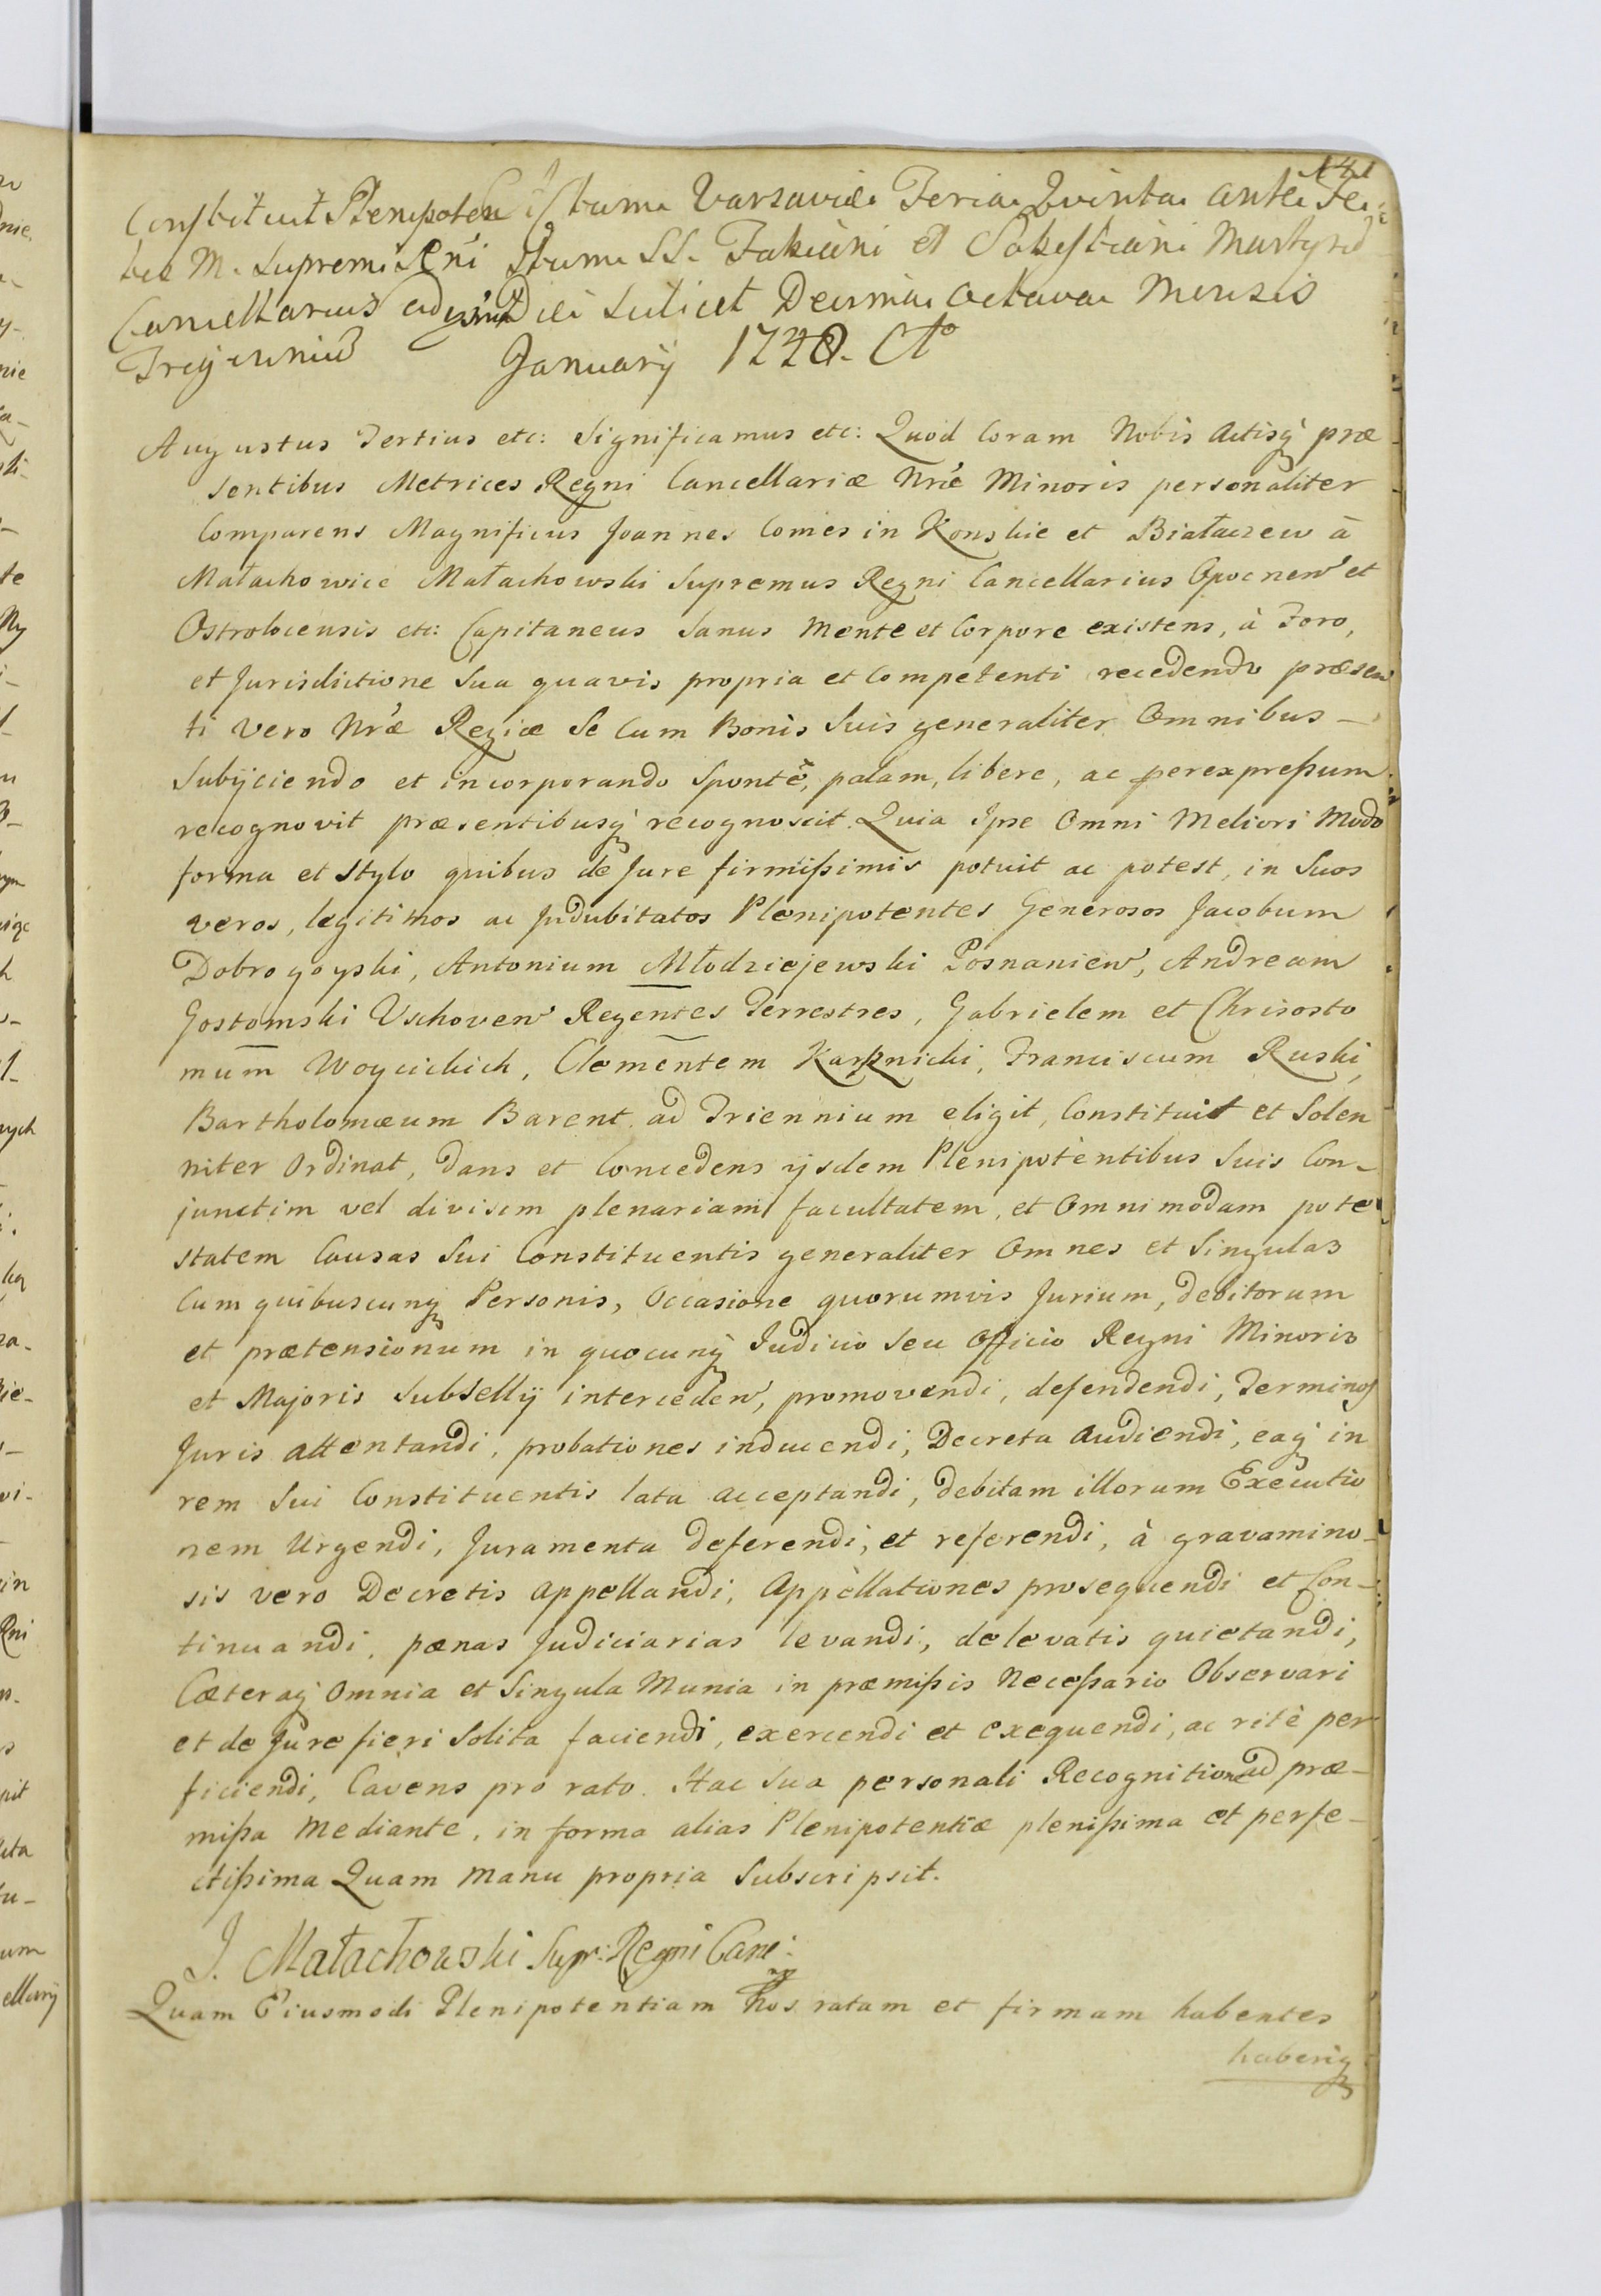 141
Constituit Plenipoten Actum Varsaviæ Feria Quinta ante Fe-
tes M. Supremi Rñi stum SS. Fabiani et Sebestiani Martyrū
Cancellarius ad Die Scilicet Decima Octava Mensis
Trijenniū Januarÿ Ao
Augustus Tertius etc: Significamus etc: Quod Coram Nobis Actisq̃ præ
sentibus Metrices Regni Cancellariæ Nræ Minoris personaliter
Comparens Magnificus Joannes Comes in Konskie et Białaczew à
Małachowice Małachowski Supremus Regni Cancellarius Opocnen et
Ostrolocensis etc: Capitaneus Sanus Mente et Corpore existens, à Foro,
et Jurisdictione Sua quavis propria et Competenti recedendo præsen
ti vero Nræ Regiæ Se Cum Bonis Suis generaliter Omnibus –
Subÿciendo et incorporando Spontè, palam, libere, ac perexpreßum
recognovit præsentibusq̃ recognoscit. Quia Ipse Omni Meliori Modo
forma et stylo quibus de Jure firmißimis potuit ac potest, in Suos
veros, legitimos ac Indubitatos Plenipotentes Generosos Jacobum
Dobrogoyski, Antonium Młodziejewski Posnanien, Andream
Gostomski Vschoven Regentes Terrestres, Gabrielem et Chrisosto
mum Woycickich, Clementem Karßnicki, Franciscum Ruski,
Bartholomæum Barent ad Triennium eligit, Constituit et Solen
niter Ordinat, dans et Concedens ijsdem Plenipotèntibus Suis Con-
junctim vel divisim plenariam facultatem, et Omnimodam pote
statem Causas Sui Constituentis generaliter Omnes et Singulas
Cum quibuscunq̃ Personis, Occasione quorumvis Jurium, debitorum
et prætensionum in quocunq̃ Judicio Seu Officio Regni Minoris
et Majoris Subsellÿ interceden, promovendi, defendendi, Terminos
Juris attentandi, probationes inducendi, Decreta Audiendi, eaq̃ in
rem Sui Constituentis lata acceptandi, debitam illorum Executio
nem Urgendi, Juramenta deferendi, et referendi, à gravamino-
sis vero Decretis appellandi, Appellationes prosequendi et Con-
tinuandi, pœnas Judiciarias levandi, de levatis quietandi,
Cæteraq̃ Omnia et Singula Munia in præmißis Neceßario Observari
et de Jure fieri Solita faciendi, exercendi et exequendi, ac ritè per
ficiendi, Cavens pro rato. Hac Sua personali Recognitione ad præ-
mißa Mediante, in forma alias Plenipotentiæ plenißima et perfe-
ctißima Quam Manu propria Subscripsit.
J. Małachowski Supr: Regni Canc:
Quam Eiusmodi Plenipotentiam Nos ratam et firmam habentes
haberiq̃